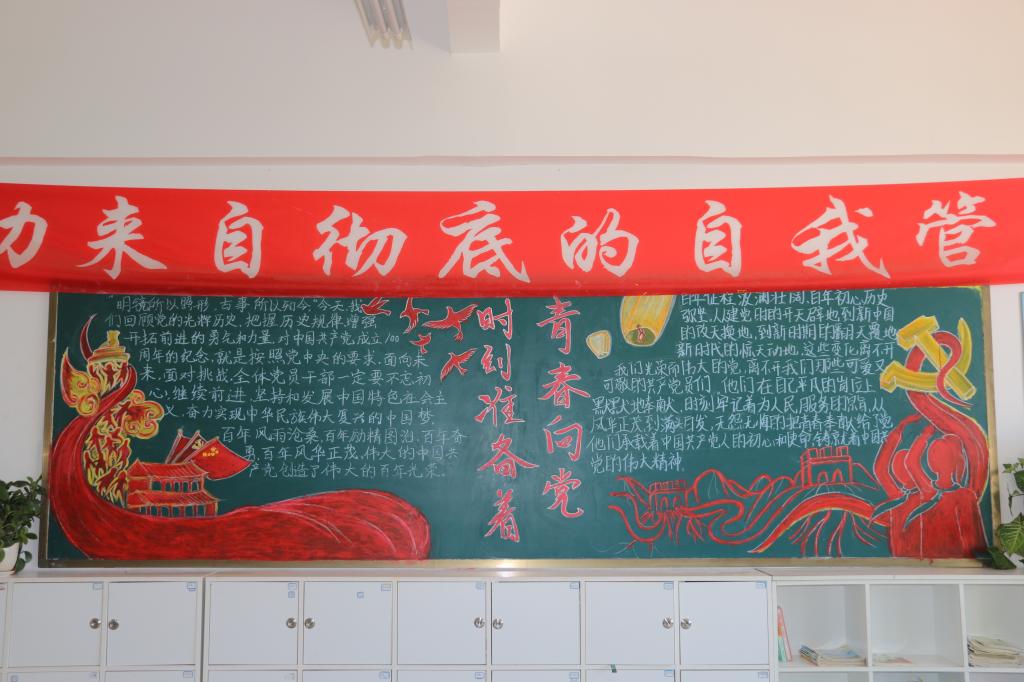 力来自彻底的自我管
"明镜所以照形,古事所以知今"今天,我
们回顾党的光辉历史,把握历史规律,增强
开拓前进的勇气和力量,对中国共产党成立100
周年的纪念,就是按照党中央的要求,面向未
来,面对挑战,全体党员干部一定要不忘初
心,继续前进,坚持和发展中国特色社会主
义,奋力实现中华民族伟大复兴的中国梦.
百年风雨沧桑,百年励精图治,百年奋
勇,百年风华正茂,伟大的中国共
产党,创造了伟大的百年光荣.
时刻准备着
青春向党
百年征程,波澜壮阔,百年初心,历史
弥坚,从建党时的开天辟地,到新中国
的改天换地,到新时期的翻天覆地
新时代的惊天动地,这些变化离不开
我们光荣而伟大的党,离不开我们那些可爱又
可敬的共产党员们,他们在自己平凡的岗位上
时刻牢记着为人民服务的
风华正茂到满头白发,无怨无悔的把青春奉献给了党
他们承载着中国共产党人的初心和使命,铸就着中国
党的伟大精神.